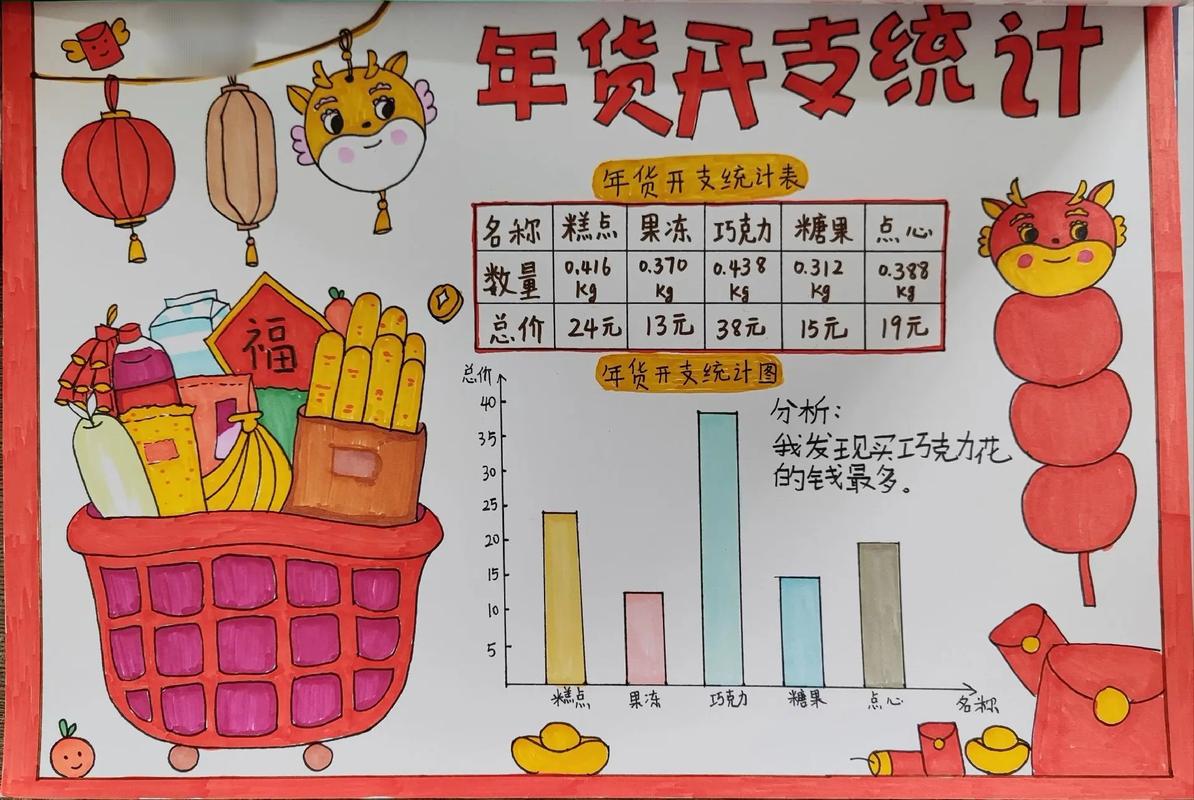 年货开支统计
年货开支统计表
名称 糕点 果冻 巧克力 糖果 点心
数量 0.416 kg 0.370 kg 0.438 kg 0.312 kg 0.388 kg
总价 24元 13元 38元 15元 19元
福
年货开支统计图
总价
40
35
30
25
20
15
10
5
糕点 果冻 巧克力 糖果 点心 名称
分析:
我发现买巧克力花
的钱最多。